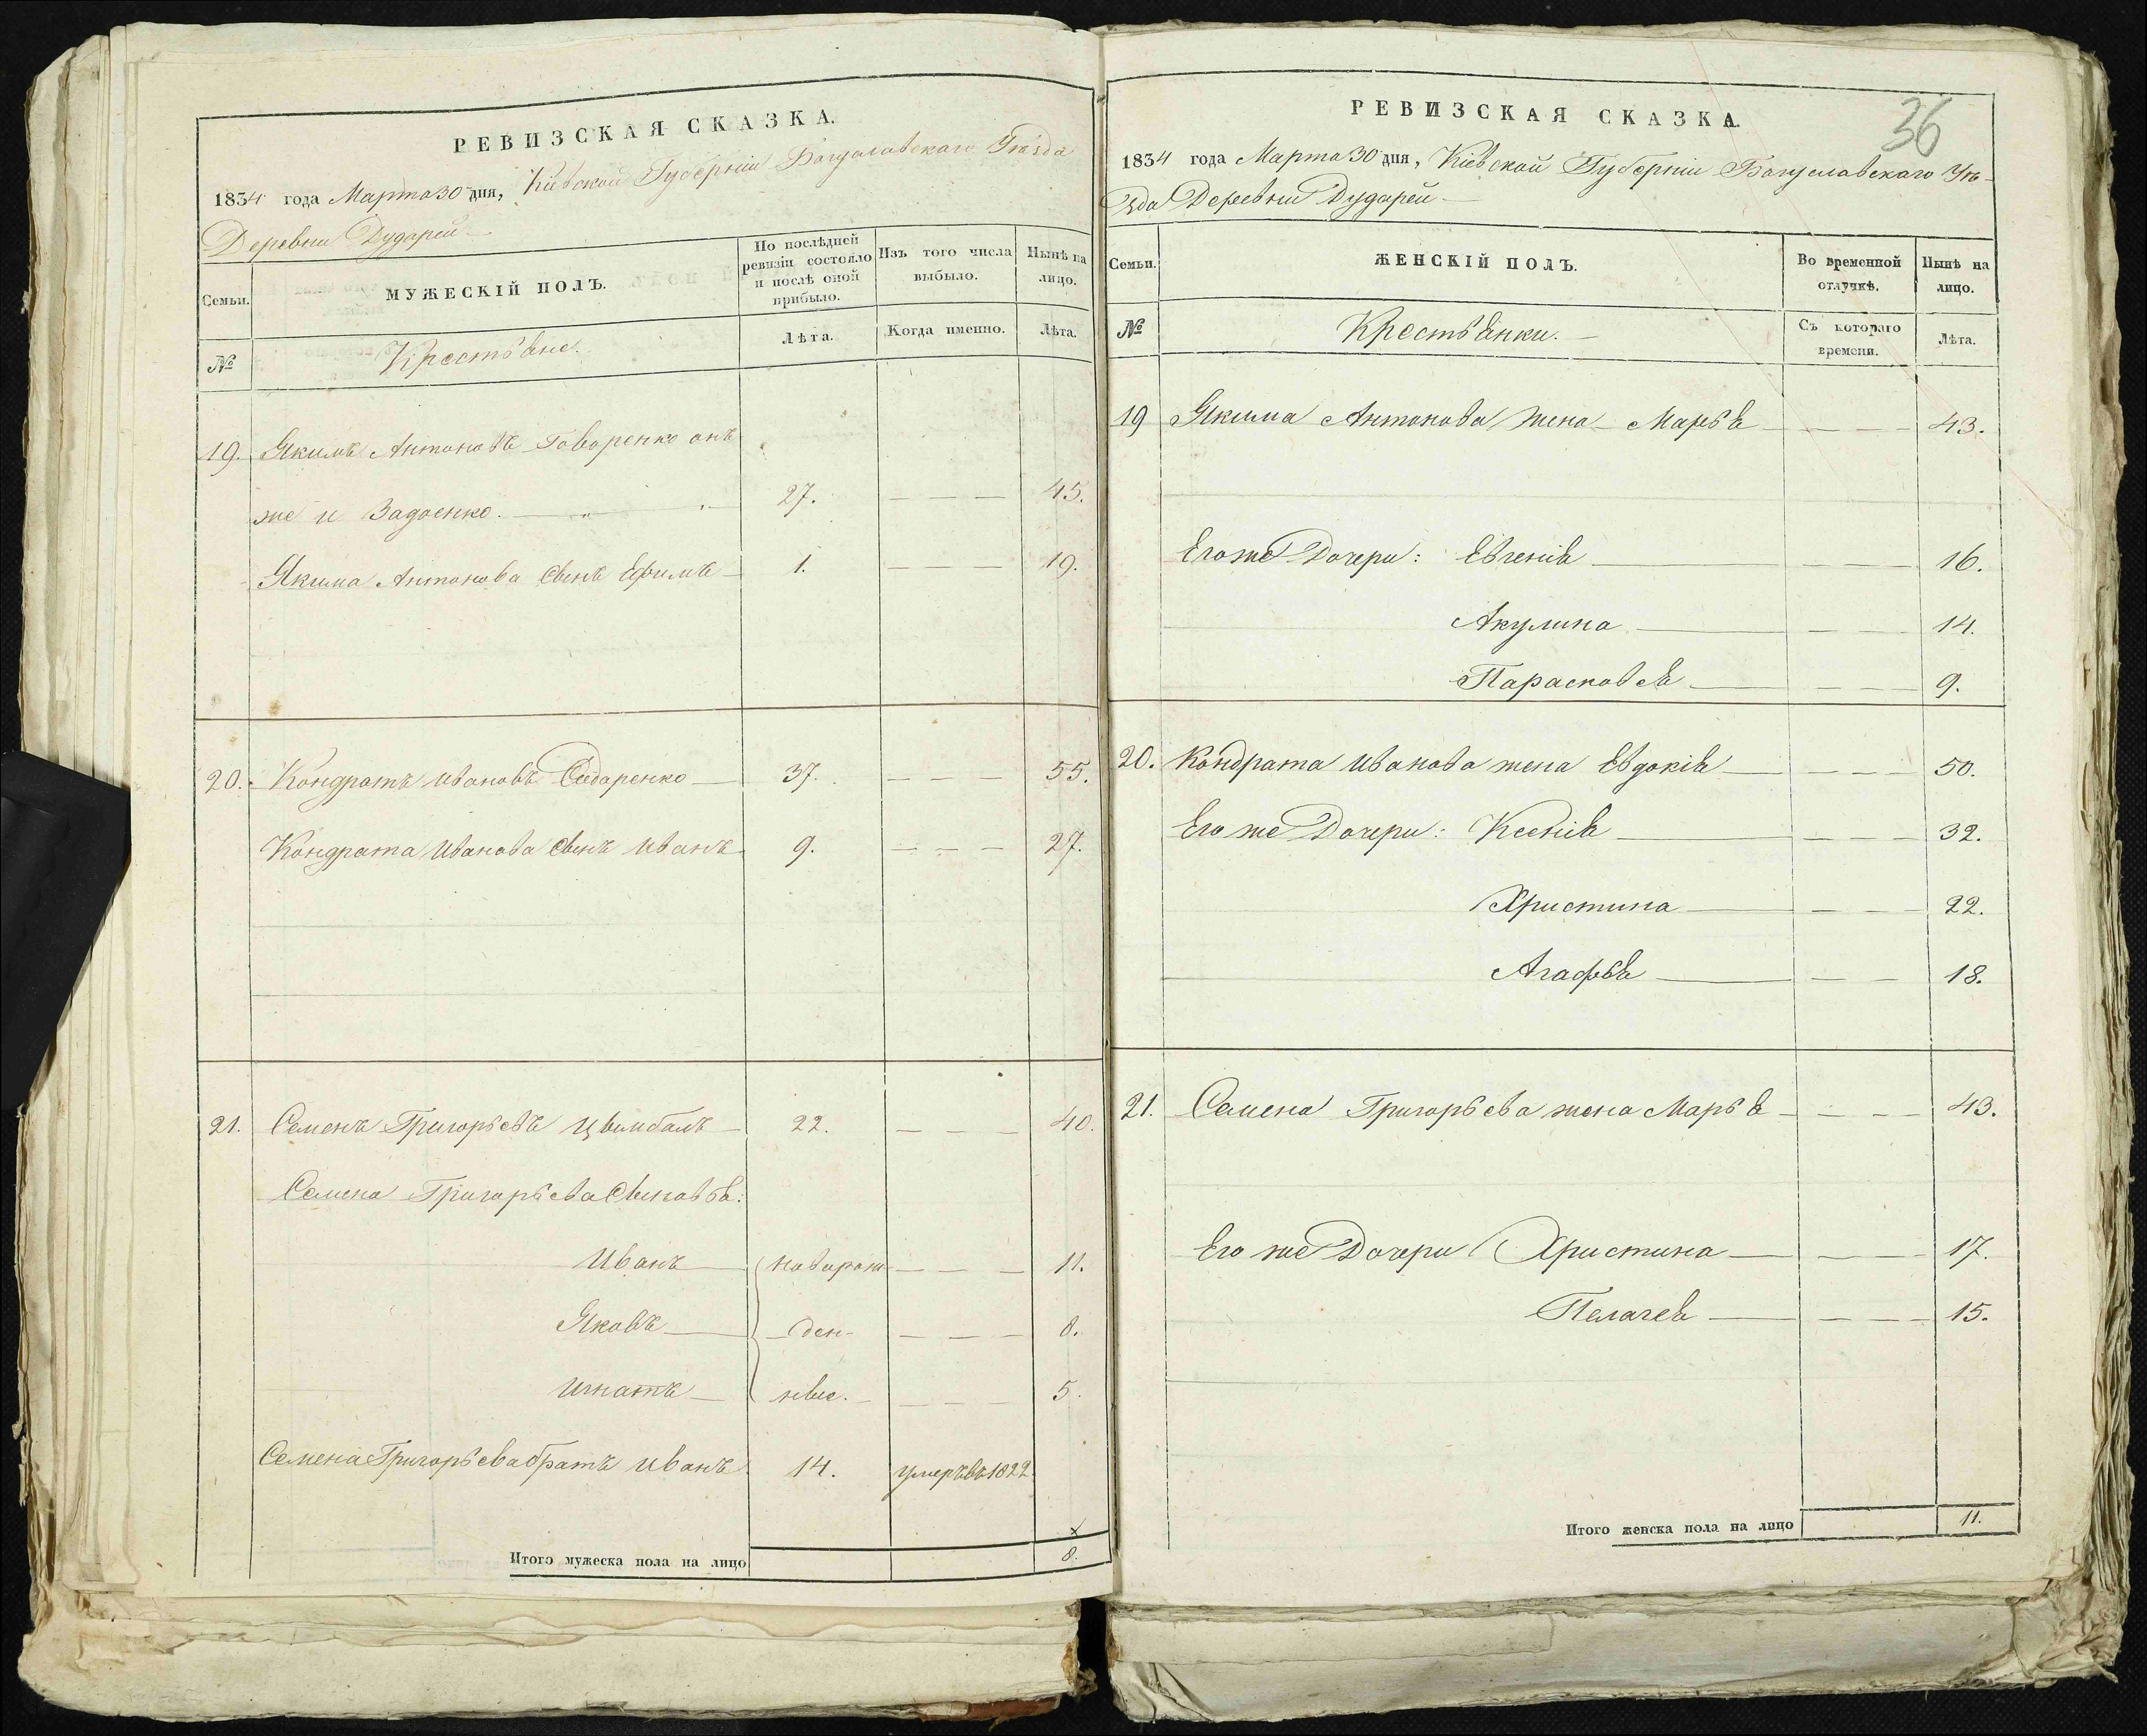 РЕВИЗСКАЯ СКАЗКА.
1834 года Марта 30 дня, Кіевской Губерніи Богуславскаго Уѣзда
Деревни Дударей
Семьи.
МУЖЕСКІЙ ПОЛЪ.
По послѣдней ревизіи состояло и послѣ оной прибыло.
Изъ того числа выбыло.
Нынѣ на лицо.
№
Крестьяне.
Лѣта.
Когда именно.
Лѣта.
19. Якимъ Антоновъ Говоренко онъ
же и Задоенко. 27. 45.
Якима Антонова сынъ Ефимъ 1. 19.
20. Кондратъ Ивановъ Сидоренко 37. 55.
Кондрата Иванова сынъ Иванъ 9. 27.
21. Семенъ Григорьевъ Цымбалъ 22. 40.
Семена Григорьева сыновья:
Иванъ новорож 11.
Яковъ ден- 8.
Игнатъ ные. 5.
Семена Григорьева братъ Иванъ 14. умеръ въ 1822
Итого мужеска пола на лицо 8.
36
РЕВИЗСКАЯ СКАЗКА.
1834 года Марта 30 дня, Кіевской Губерніи Богуславскаго Уѣ-
зда Деревни Дударей
Семьи.
ЖЕНСКІЙ ПОЛЪ.
Во временной отлучкѣ.
Нынѣ на лицо.
№
Крестьянки.
Съ котораго времени.
Лѣта.
19 Якима Антонова жена Марья 43.
Его же Дочери: Евгенія 16.
Акулина 14.
Парасковея 9.
20. Кондрата Иванова жена Евдокія 50.
Его же Дочери: Ксенія 32.
Христина 22.
Агафья 18.
21. Семена Григорьева жена Марья 43.
Его же Дочери Христина 17.
Пелагея 15.
Итого женска пола на лицо 11.